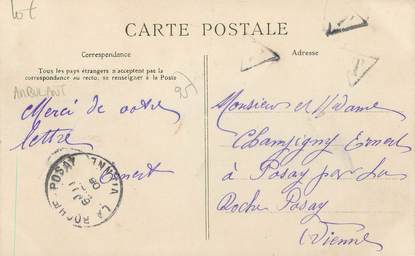 lot
CARTE POSTALE
Correspondance
Adresse
Tous les pays étrangers n'acceptent pas la
correspondance au recto, se renseigner à la Poste
AMBULANT
95
Merci de votre
lettre
Ernest
Monsieur et Madame
Champigny Ernest
à Posay par La
Roche Posay
Vienne
LA ROCHE POSAY
VIENNE
T